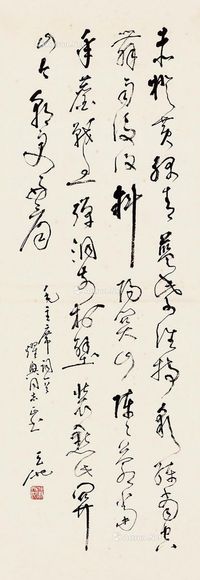 赤橙黄绿青蓝紫谁持彩练当空
舞雨后复斜阳关山阵阵苍当
年鏖战急弹洞前村壁装点此关
山今朝更好看
毛主席词一首
同志